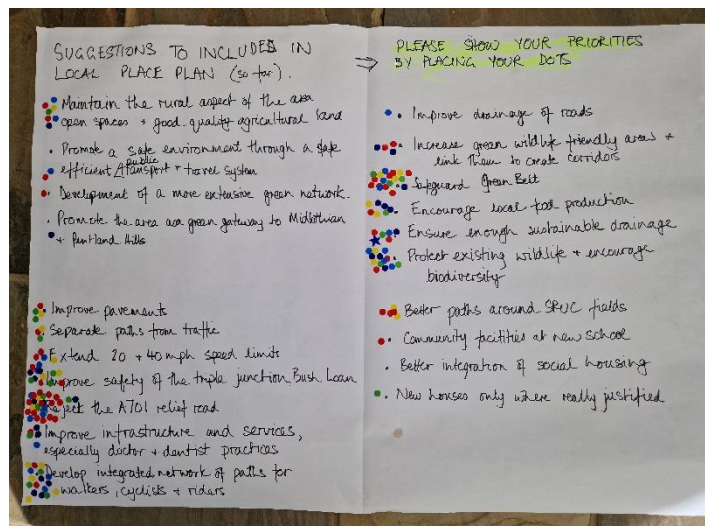 SUGGESTIONS TO INCLUDED IN
LOCAL PLACE PLAN (so far).
Maintain the rural aspect of the area
open spaces + good quality agricultural land
• Promote a safe environment through a safe
efficient public transport + travel system
• Development of a more extensive green network.
• Promote the area as a green gateway to Midlothian
+ Pentland Hills
• Improve pavements
• Separate paths from traffic
Extend 20 + 40 mph speed limits
Improve safety of the triple junction Bush Loan
Reject the A701 relief road
Improve infrastructure and services,
especially doctor + dentist practices
Develop integrated network of paths for
walkers, cyclists + riders
⇒ PLEASE SHOW YOUR PRIORITIES
BY PLACING YOUR DOTS
• Improve drainage of roads
• Increase green wildlife friendly areas +
link them to create corridors
Safeguard Green Belt
• Encourage local food production
• Ensure enough sustainable drainage
• Protect existing wildlife + encourage
biodiversity
• Better paths around SRUC fields
• Community facilities at new school
• Better integration of social housing
• New houses only where really justified